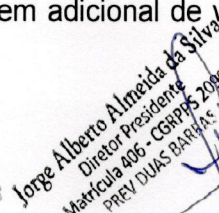 em adicional de
Jorge Alberto Almeida da Silva
Diretor Presidente
Matrícula 406 - CGRPPS
PREV DUAS BARRAS